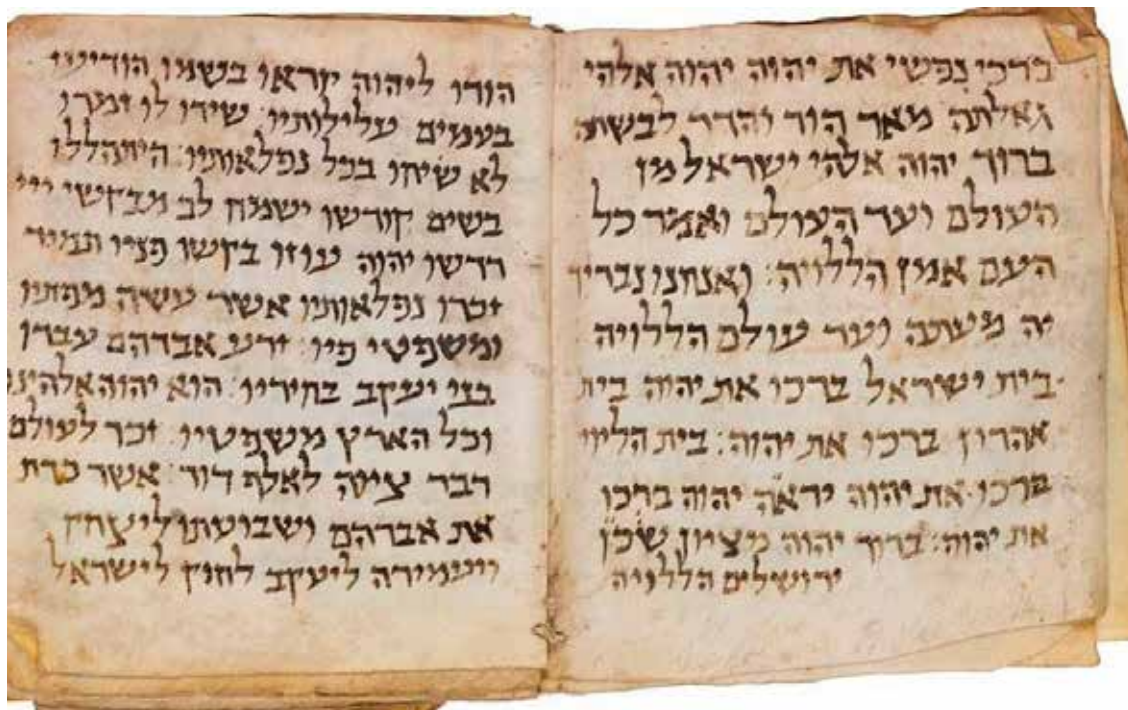 ברכי נפשי את יהוה יהוה אלהי
גאלתה מאד הוד והדר לבשתה
ברוך יהוה אלהי ישראל מן
העולם ועד העולם ואמר כל
העם אמן הללויה: ואנחנו נבריך
יה מעתה ועד עולם הללויה
בית ישראל ברכו את יהוה בית
אהרון ברכו את יהוה: בית הליוי
ברכו את יהוה יראה יהוה ברכו
את יהוה: ברוך יהוה מציון שכן
ירושלים הללויה
הודו ליהוה קראו בשמו הודיעו
בעמים עלילותיו: שירו לו זמרו
לא שיחו בכל נפלאותיו: היתהללו
בשים קודשו ישמח לב מבקשי ייי
דרשו יהוה עוזו בקשו פניו תמיד
זכרו נפלאותיו אשר עשה מפתיו
ומשפטי פיו: זרע אברהם עבדו
בני יעקב בחיריו: הוא יהוה אלהינו
וכל הארץ משפטיו: זכר לעולם
דבר ציוה לאלף דור: אשר כרת
את אברהם ושבועתו ליצחק
ויעמידה ליעקב לחוק לישראל